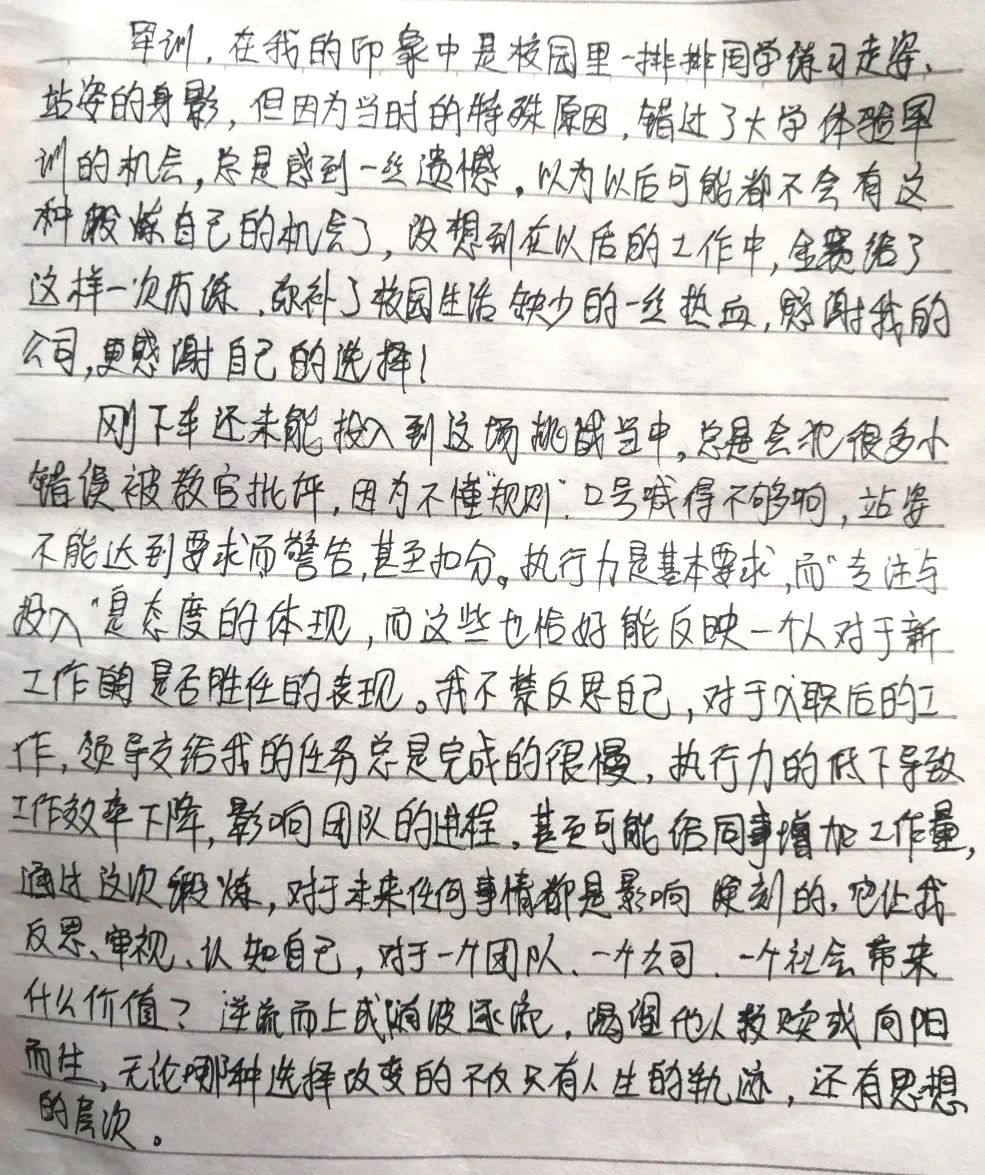 军训，在我的印象中是校园里一排排同学练习走姿、
站姿的身影，但因为当时的特殊原因，错过了大学体验军
训的机会，总是感到一丝遗憾。以为以后可能都不会有这
种锻炼自己的机会了，没想到在以后的工作中，金赛给了
这样一次历练，弥补了校园生活缺少的一丝热血，感谢我的
公司，更感谢自己的选择！
刚下车还未能投入到这场挑战当中，总是会犯很多小
错误被教官批评，因为不懂“规则”，口号喊得不够响，站姿
不能达到要求而警告，甚至扣分。执行力是基本要求，而“专注与
投入”是态度的体现，而这些也恰好能反映一个人对于新
工作是否胜任的表现。我不禁反思自己，对于入职后的工
作，领导交给我的任务总是完成的很慢，执行力的低下导致
工作效率下降，影响团队的进程。甚至可能给同事增加工作量，
通过这次锻炼，对于未来任何事情都是影响深刻的，它让我
反思、审视、认知自己，对于一个团队、一个公司、一个社会带来
什么价值？逆流而上或随波逐流，渴望他人救赎或向阳
而生，无论哪种选择改变的不仅只有人生的轨迹，还有思想
的层次。